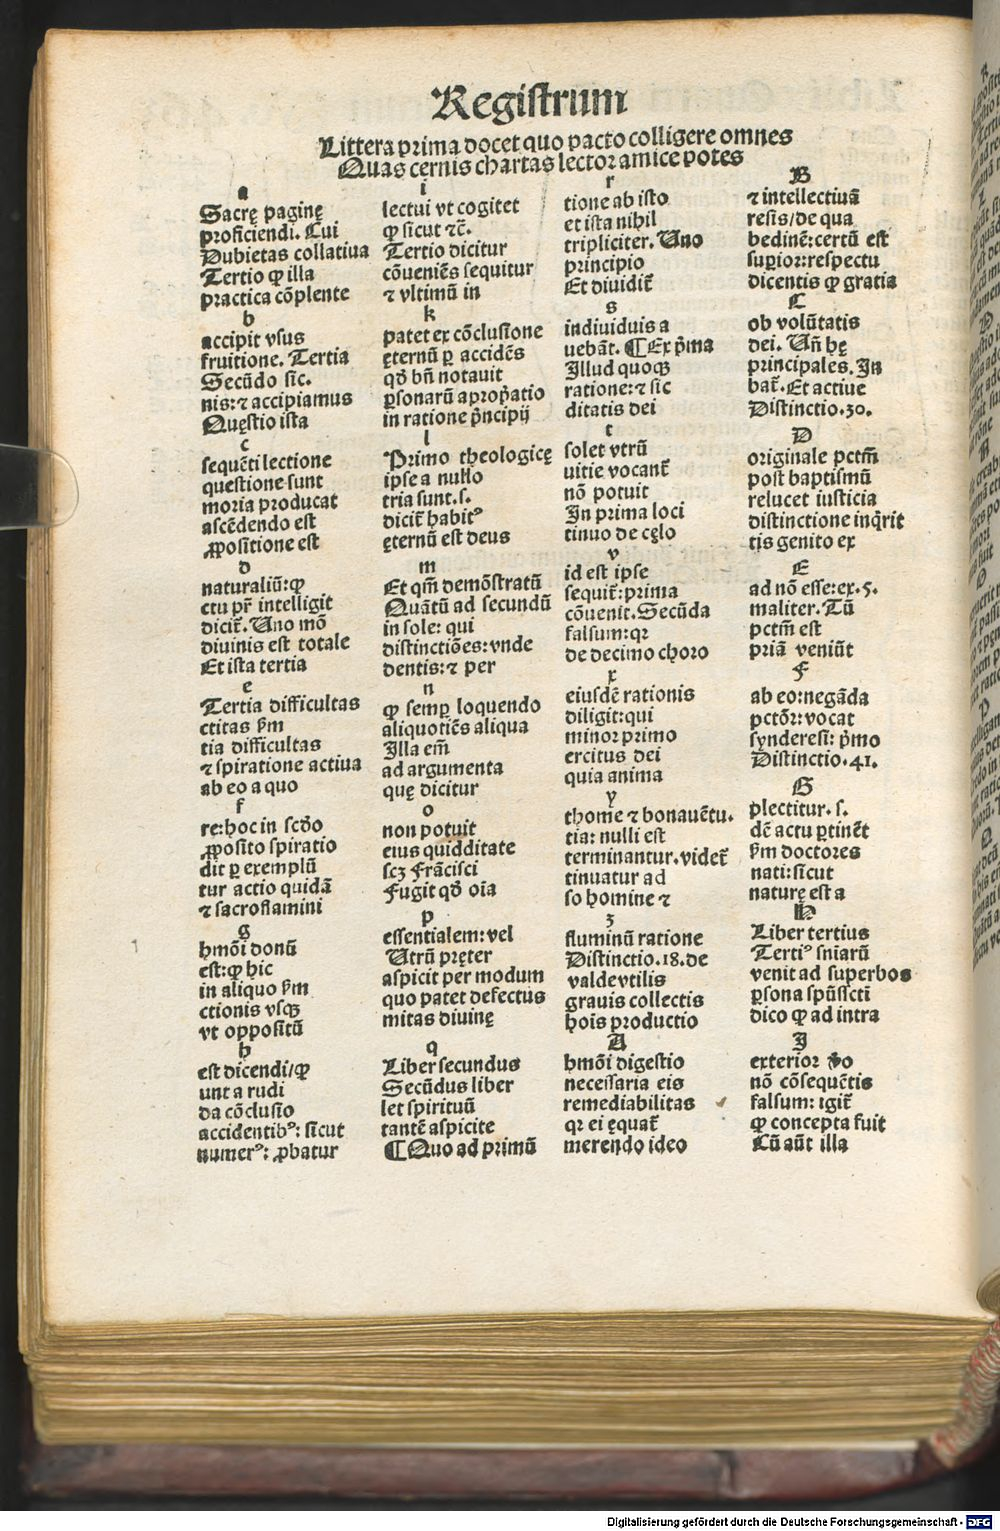 Registrum
Littera prima docet quo pacto colligere omnes
Quas cernis chartas lector amice potes
a
Sacrę paginę
proficiendi. Cui
Dubietas collatiua
Tertio ꝙ illa
practica cōplente
b
accipit vsus
fruitione. Tertia
Secūdo sic.
nis:⁊ accipiamus
Quęstio ista
c
sequēti lectione
questione sunt
moria producat
ascēdendo est
ꝓpositione est
d
naturaliū:ꝙ
ctu pr̄ intelligit
dicit̄. Uno mō
diuinis est totale
Et ista tertia
e
Tertia difficultas
ctitas ẜm
tia difficultas
⁊ spiratione actiua
ab eo a quo
f
re:hoc in scd̄o
ꝓposito spiratio
dit ꝑ exemplū
tur actio quidā
⁊ sacroflamini
g
hmōi donū
est:ꝙ hic
in aliquo ẜm
ctionis vsqꝫ
vt oppositū
h
est dicendi/ꝙ
unt a rudi
da cōclusio
accidentibꝰ: sicut
numerꝰ: ꝓbatur
i
lectui vt cogitet
ꝙ sicut ⁊c̄.
Tertio dicitur
cōueniēs sequitur
⁊ vltimū in
k
patet ex cōclusione
ęternū ꝑ accidēs
qd̄ bn̄ notauit
ꝑsonarū apropr̄atio
in ratione pr̄ncipij
l
Primo theologicę
ipse a nullo
tria sunt.s.
dicit̄ habitꝰ
ęternū est deus
m
Et qm̄ demōstratū
Quātū ad secundū
in sole: qui
distinctiōes:vnde
dentis:⁊ per
n
ꝙ semꝑ loquendo
aliquotiēs aliqua
Illa em̄
ad argumenta
quę dicitur
o
non potuit
eius quidditate
scꝫ frācisci
fugit qd̄ oīa
p
essentialem:vel
Utrū pręter
aspicit per modum
quo patet defectus
mitas diuinę
q
Liber secundus
Secūdus liber
let spirituū
tantē aspicite
¶Quo ad primū
r
tione ab isto
et ista nihil
tripliciter. Uno
principio
Et diuidit̄
s
indiuiduis a
uebāt. ¶Ex pr̄ma
Illud quoqꝫ
ratione:⁊ sic
ditatis dei
t
solet vtrū
uitie vocant̄
nō potuit
In prima loci
tinuo de cęlo
v
id est ipse
sequit̄:prima
cōuenit. Secūda
falsum:qꝛ
de decimo choro
x
eiusdē rationis
diligit:qui
minor primo
ercitus dei
quia anima
y
thome ⁊ bonauētu.
tia: nulli est
terminantur.videt̄
tinuatur ad
so homine ⁊
z
fluminū ratione
Distinctio.18.de
valde vtilis
grauis collectis
hoīs productio
A
hmōi digestio
necessaria eis
remediabilitas
qꝛ ei ęquat̄
merendo ideo
B
⁊ intellectiuā
resis/de qua
bedinē:certū est
suꝑior:respectu
dicentis ꝙ gratia
C
ob volūtatis
dei. Un̄ hę
principales. In
bat̄. Et actiue
Distinctio.30.
D
originale pctm̄
post baptismū
relucet iusticia
distinctione inqr̄it
tis genito ex
E
ad nō esse:ex.5.
maliter. Tū
pctm̄ est
priā veniūt
F
ab eo:negāda
pctōꝝ:vocat
synderesi: pr̄mo
Distinctio.41.
G
plectitur. s.
dē actu ꝑtinēt
ẜm doctores
nati:sicut
naturę est a
H
Liber tertius
Tertiꝰ sniarū
venit ad superbos
ꝑsona spūscti
dico ꝙ ad intra
I
exterior v̄o
nō cōsequētis
falsum: igit̄
ꝙ concepta fuit
Cū aūt illa
Digitalisierung gefördert durch die Deutsche Forschungsgemeinschaft - DFG